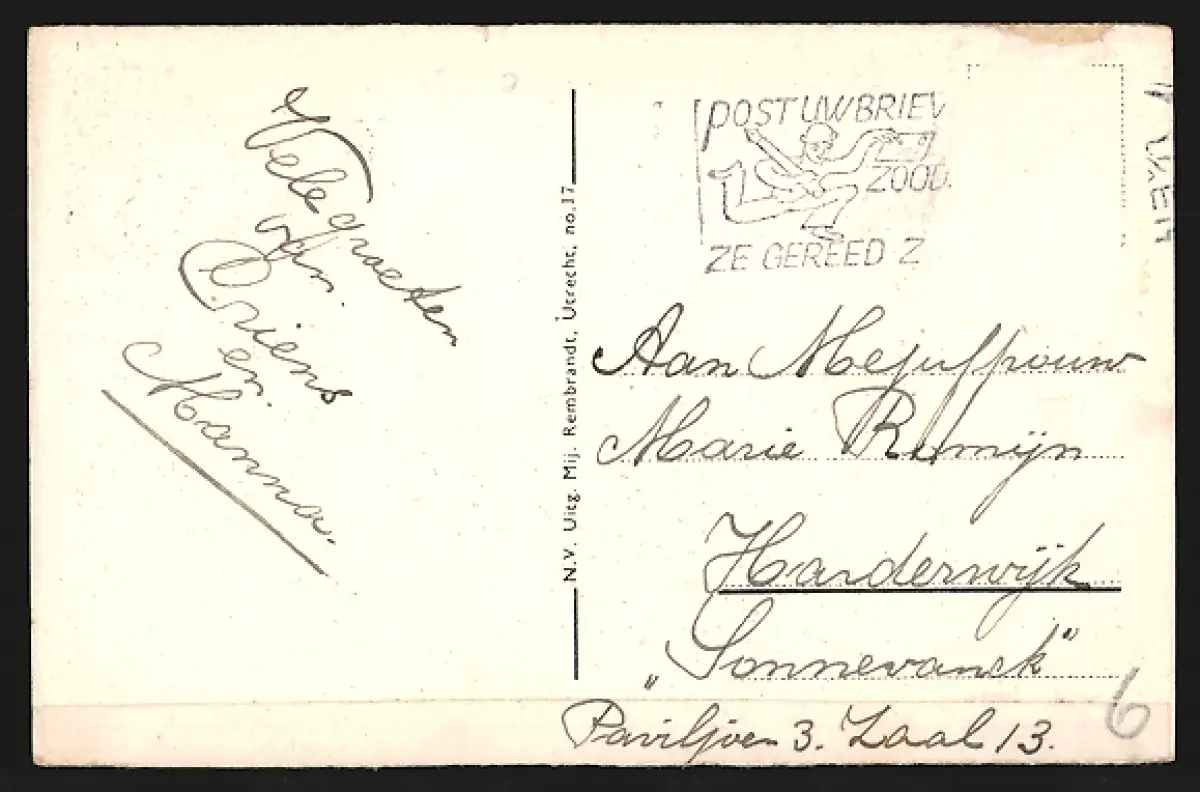 Vele groeten
van
Driens
en
Manna.
N.V. Uitg. Mij. Rembrandt, Utrecht, no. 17
POST UW BRIEV
ZOOD
ZE GEREED Z
Aan Mejuffrouw
Marie Romijn
Harderwijk
„Sonnevanck"
Paviljoen 3. Zaal 13.
6